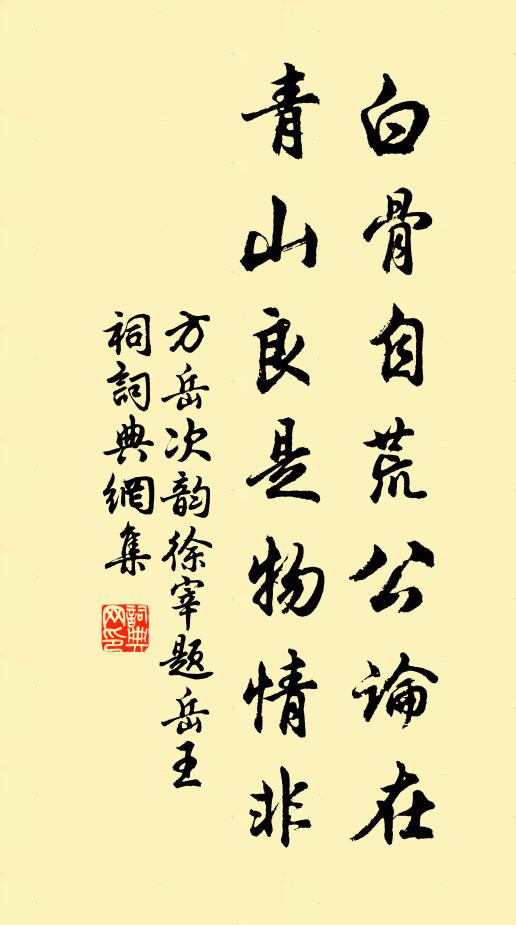 白骨自荒公論在
青山良是物情非
方岳次韵徐宰題岳王
祠詞典網集
詞典網印